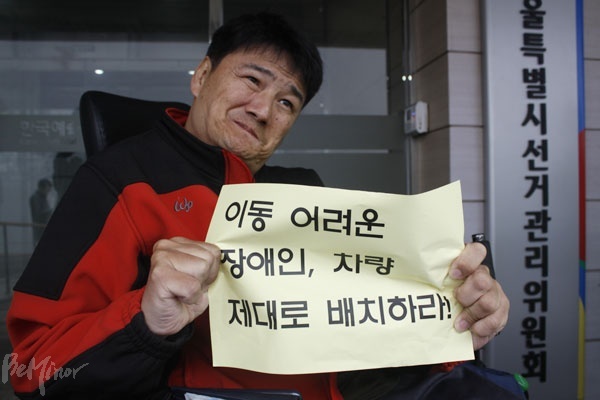 이동 어려운
장애인, 차량
제대로 배치하라!
울특별시선거관리위원회
한국예
BeMinor